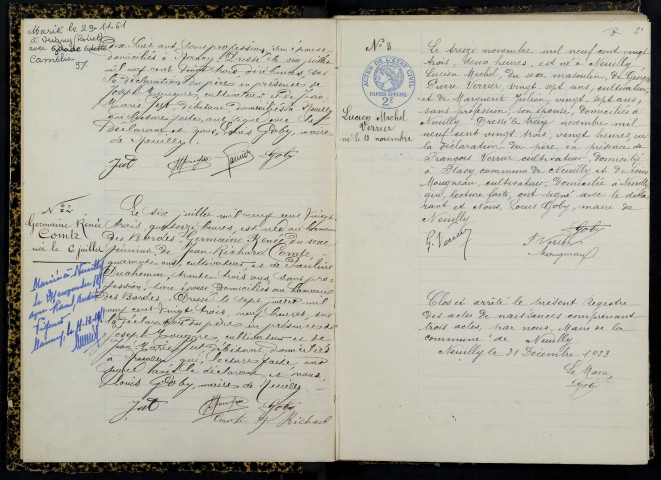 Marié le 29-11-61
à
avec
Camélia
dix huit ans, sans profession, son épouse,
domiciliés à Dressé le six juillet
mil neuf cent vingt trois dix heures, sur
la déclaration du père en présence de
Joseph cultivateur et de Jean
Marie Jut débitant domiciliés à Neuilly
qui lecture faite, ont signé avec le
déclarant et nous, Louis Goby, maire
de Neuilly.
Jut Goby
N° 2
Germaine Renée
Comte
née le 6 juillet
Mariée à Neuilly
le
avec
Le six juillet mil neuf cent vingt
trois, heures, est née au hameau
des Bordes Germaine Renée du sexe
féminin, de Jean Richard Comte
quarante ans, cultivateur, et de Pauline
Duchemin, trente trois ans, sans pro-
fession, son épouse domiciliés au hameau
des Bordes. Dressé le sept juillet mil
neuf cent vingt trois, neuf heures, sur
la déclaration du père, en présence de
Joseph cultivateur et de
Jean Marie Jut débitant domiciliés
à Neuilly qui, lecture faite ont
signé avec le déclarant et nous
Louis Goby, maire de Neuilly.
Jut Goby
Comte Richard
2
N° 3
ACTES DE L'ÉTAT CIVIL
PAPIER SPÉCIAL
2F
Lucien Michel
Verrier
né le 13 novembre
Le treize novembre mil neuf cent vingt
trois, deux heures, est né à Neuilly
Lucien Michel, du sexe masculin, de Georges
Pierre Verrier, vingt sept ans, cultivateur,
et de Marguerite Julien, vingt sept ans,
sans profession, son épouse, domiciliés à
Neuilly. Dressé le treize novembre mil
neuf cent vingt trois, vingt heures, sur
la déclaration du père en présence de
François Verrier cultivateur, domicilié
à commune de Neuilly et de Louis
Mougneau, cultivateur, domicilié à Neuilly
qui, lecture faite, ont signé avec le décla-
rant et Nous, Louis Goby, maire de
Neuilly
Goby
G. Verrier F Verrier
Mougneau
Clos et arrêté le présent registre
des actes de naissances comprenant
trois actes, par nous, Maire de la
commune de Neuilly
Neuilly le 31 Décembre 1923
Le Maire
Goby